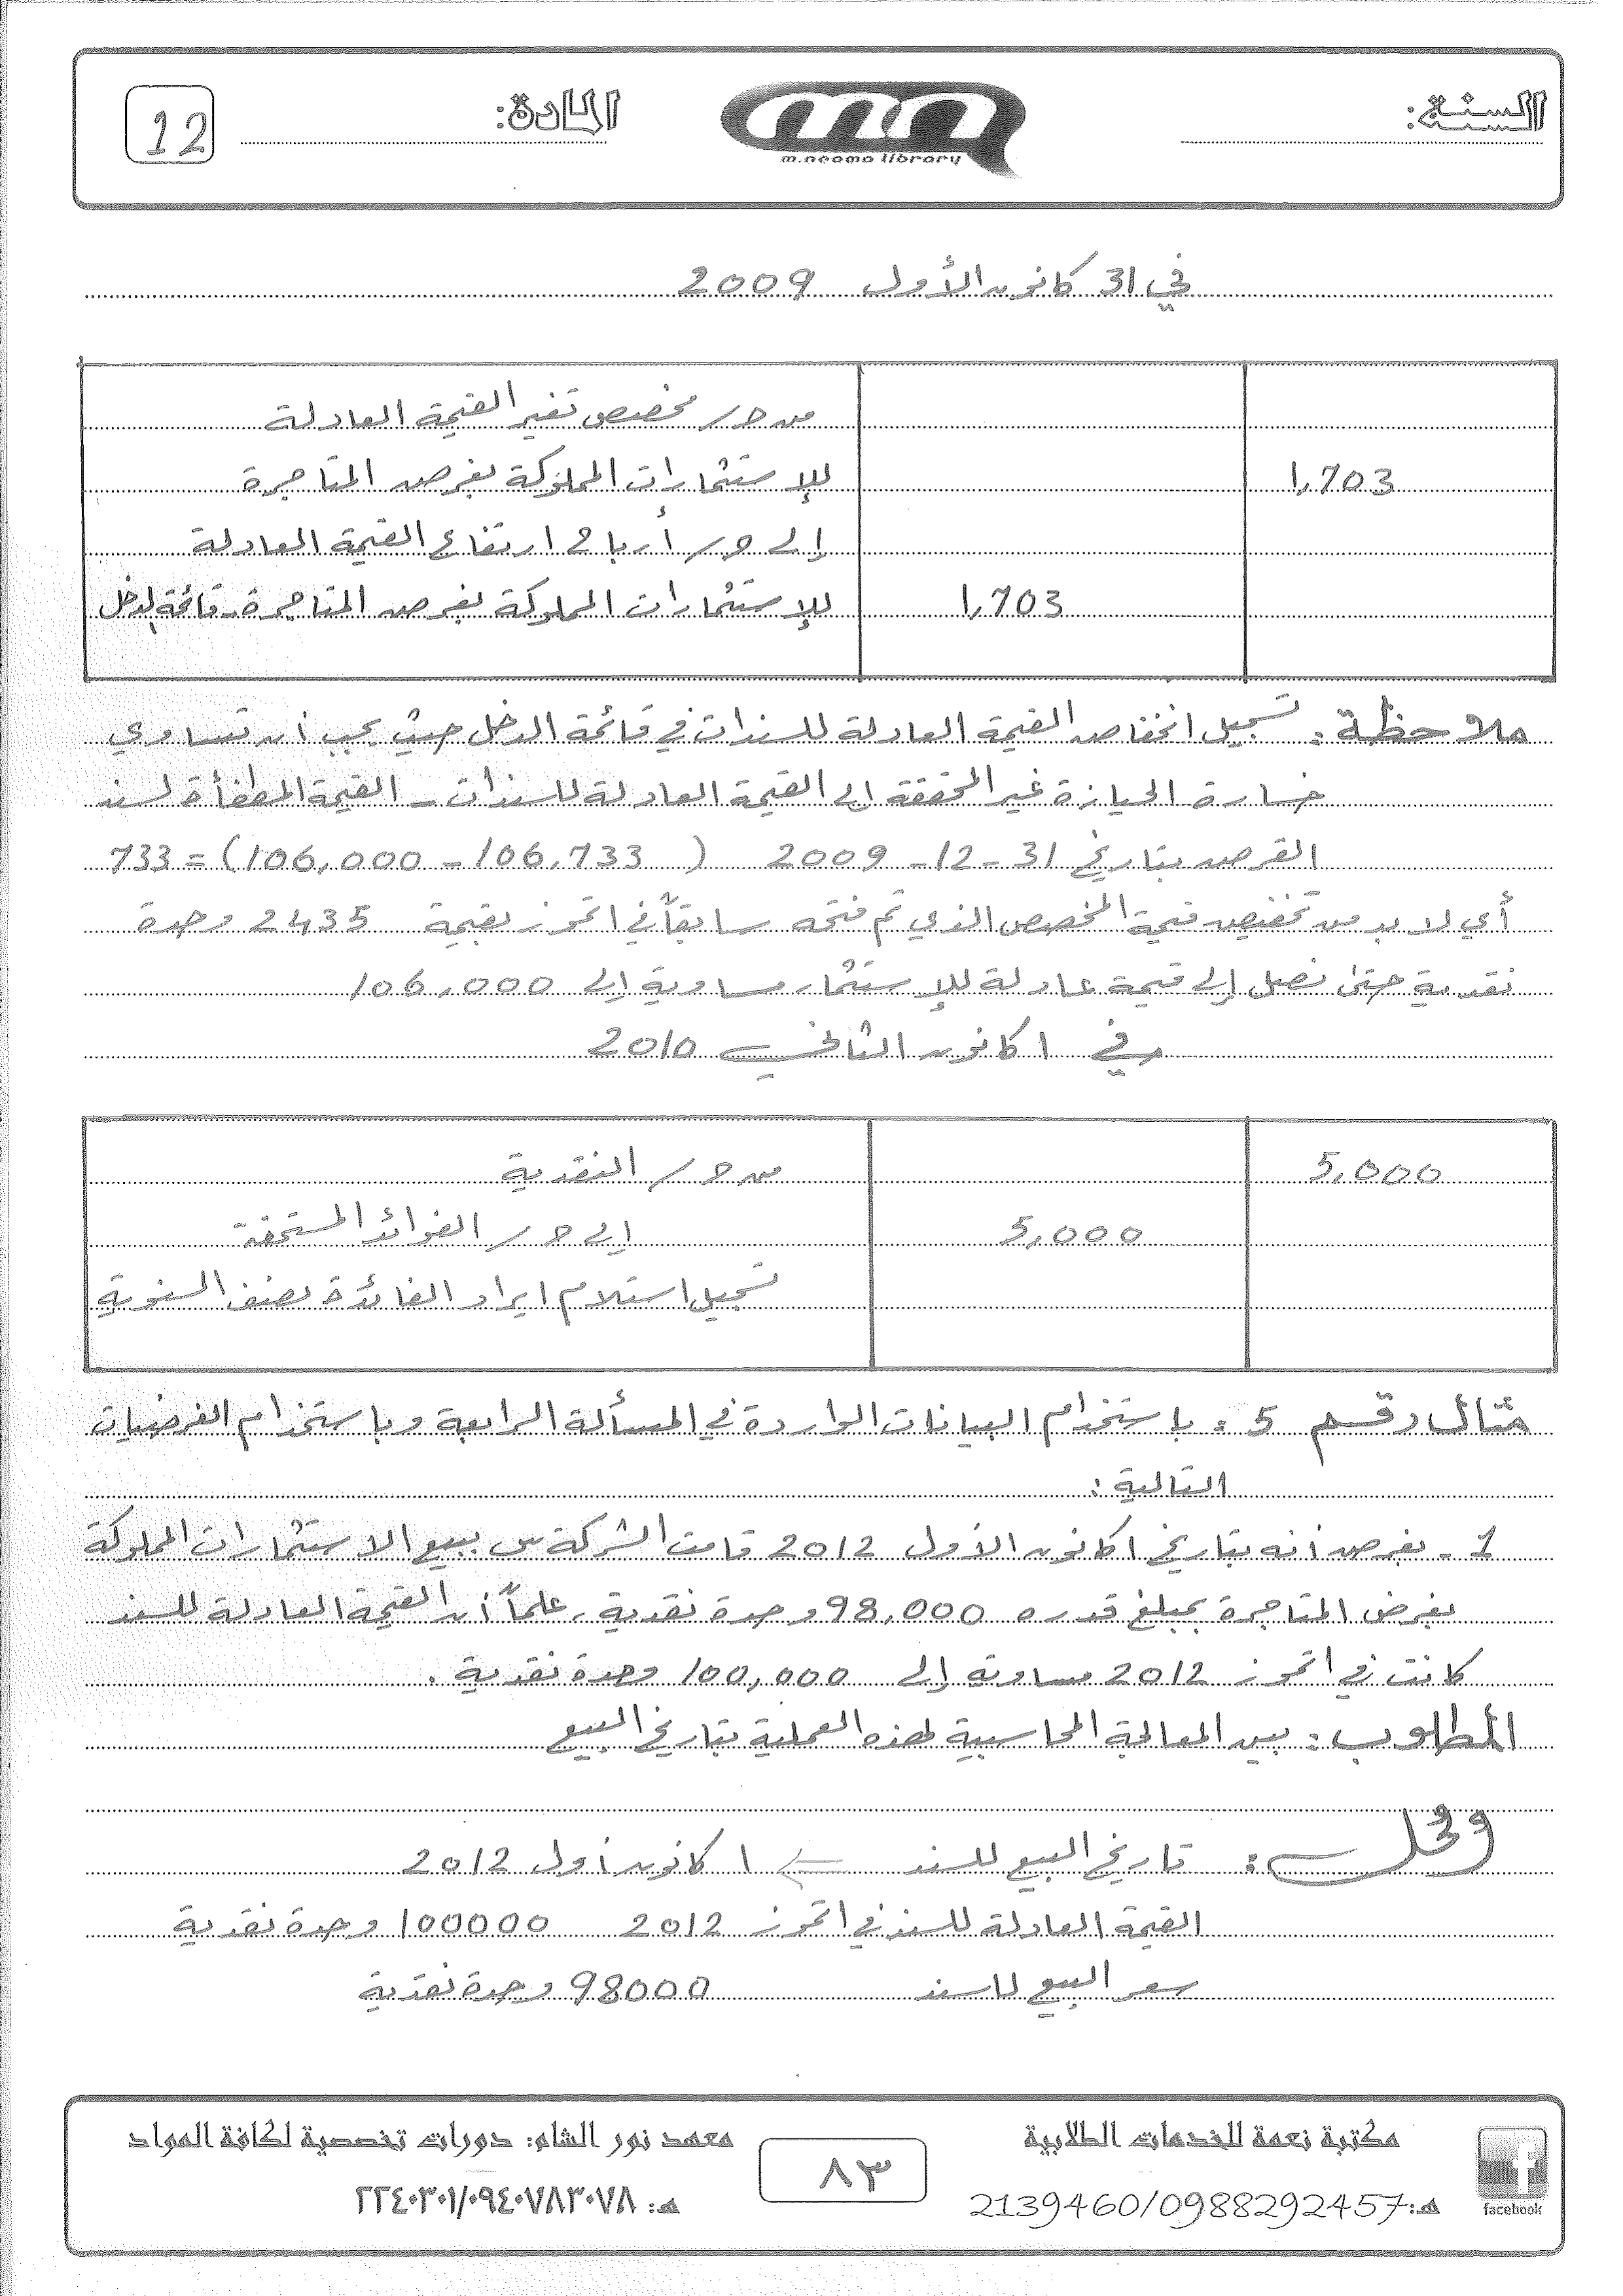 السنة:
m.neama library
المادة:
12
في 31 كانون الأول 2009
من حـ/ مخصص تغير القيمة العادلة
1,703 للإستثمارات المملوكة بغرض المتاجرة
إلى حـ/ أرباح ارتفاع القيمة العادلة
1,703 للإستثمارات المملوكة بغرض المتاجرة - قائمة لدخل
ملاحظة: تسجيل انخفاض القيمة العادلة للسندات في قائمة الدخل حيث يجب أن تساوي
خسارة الحيازة غير المحققة إلى القيمة العادلة للسندات - القيمة المطفأة لسند
القرض بتاريخ 31 - 12 - 2009 ( 106,733 - 106,000) = 733
أي لا بد من تخفيض قيمة المخصص الذي تم فتحه سابقاً في 1 تموز بقيمة 2435 وحدة
نقدية حتى نصل إلى قيمة عادلة للإستثمار مساوية إلى 106,000
وفي 1 كانون الثاني 2010
5,000 من حـ/ النقدية
5,000 إلى حـ/ الفوائد المستحقة
تسجيل استلام ايراد الفائدة نصف السنوية
مثال رقم 5: باستخدام البيانات الواردة في المسألة الرابعة وباستخدام الفرضيات
التالية:
1 - بفرض أنه بتاريخ 1 كانون الأول 2012 قامت الشركة س ببيع الاستثمارات المملوكة
بغرض المتاجرة بمبلغ قدره 98,000 وحدة نقدية، علماً أن القيمة العادلة للسند
كانت في 1 تموز 2012 مساوية إلى 100,000 وحدة نقدية.
المطلوب: بين المعالجة المحاسبية لهذه العملية بتاريخ البيع
الحل: تاريخ البيع للسند ← 1 كانون أول 2012
القيمة العادلة للسند في 1 تموز 2012 100000 وحدة نقدية
سعر البيع للسند 98000 وحدة نقدية
مكتبة نعمة للخدمات الطلابية
هـ: 2139460/0988292457
facebook
٨٣
معهد نور الشام: دورات تخصصية لكافة المواد
هـ: ٢٢٤٠٣٠١/٠٩٤٠٧٨٣٠٧٨